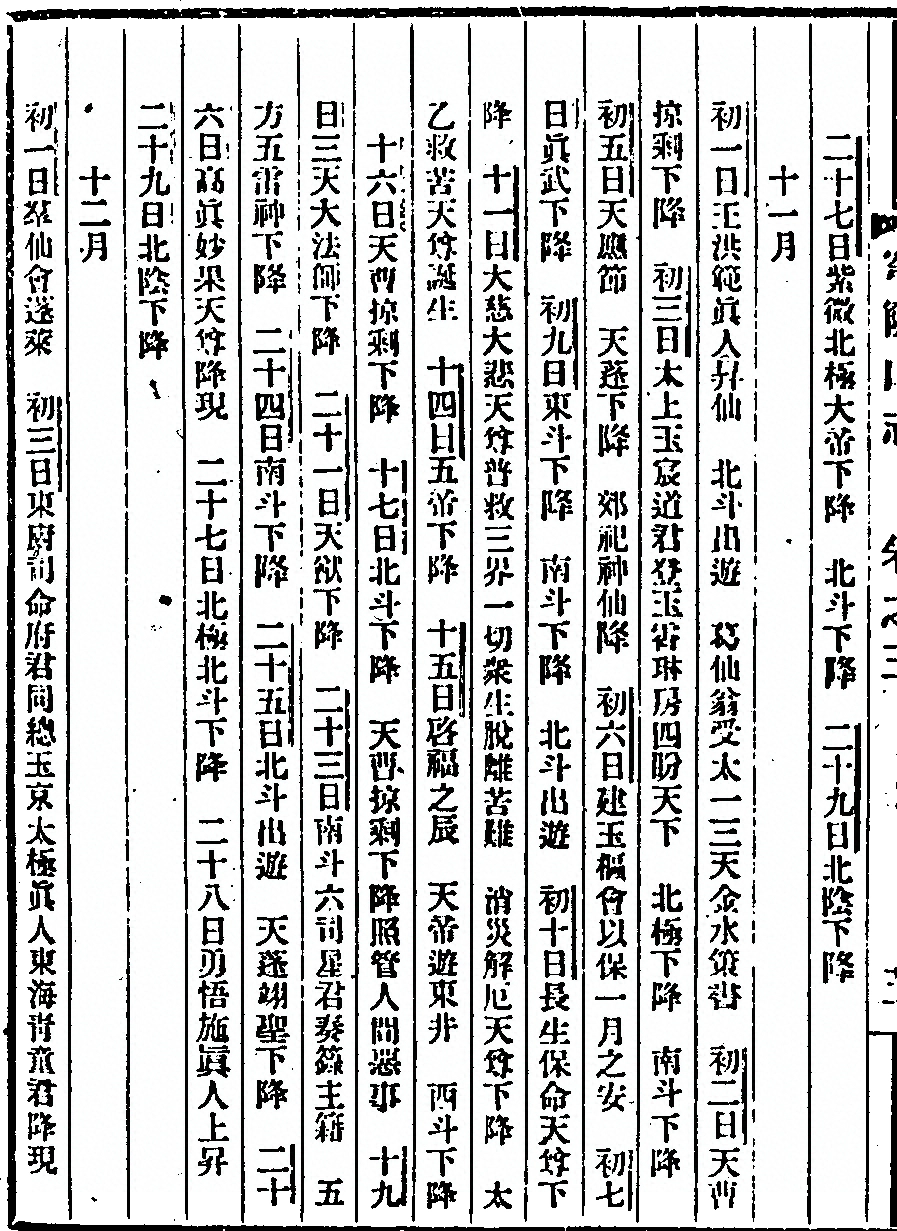 二十七日紫微北極大帝下降　北斗下降　二十九日北陰下降
十一月
初一日王洪範眞人昇仙　北斗出遊　葛仙翁受太一三天金水策書　初二日天曹
掠剩下降　初三日太上玉宸道君登玉霄琳房四盼天下　北極下降　南斗下降
初五日天應節　天蓬下降　郊祀神仙降　初六日建玉樞會以保一月之安　初七
日眞武下降　初九日東斗下降　南斗下降　北斗出遊　初十日長生保命天尊下
降　十一日大慈大悲天尊普救三界一切衆生脫離苦難　消災解厄天尊下降　太
乙救苦天尊誕生　十四日五帝下降　十五日啓福之辰　天帝遊東井　西斗下降
十六日天曹掠剩下降　十七日北斗下降　天曹掠剩下降照管人間惡事　十九
日三天大法師下降　二十一日天猷下降　二十三日南斗六司星君奏籙主籍　五
方五雷神下降　二十四日南斗下降　二十五日北斗出遊　天蓬翊聖下降　二十
六日高眞妙果天尊降現　二十七日北極北斗下降　二十八日勇悟施眞人上昇
二十九日北陰下降
十二月
初一日羣仙會蓬萊　初三日東廚司命府君同總玉京太極眞人東海靑童君降現